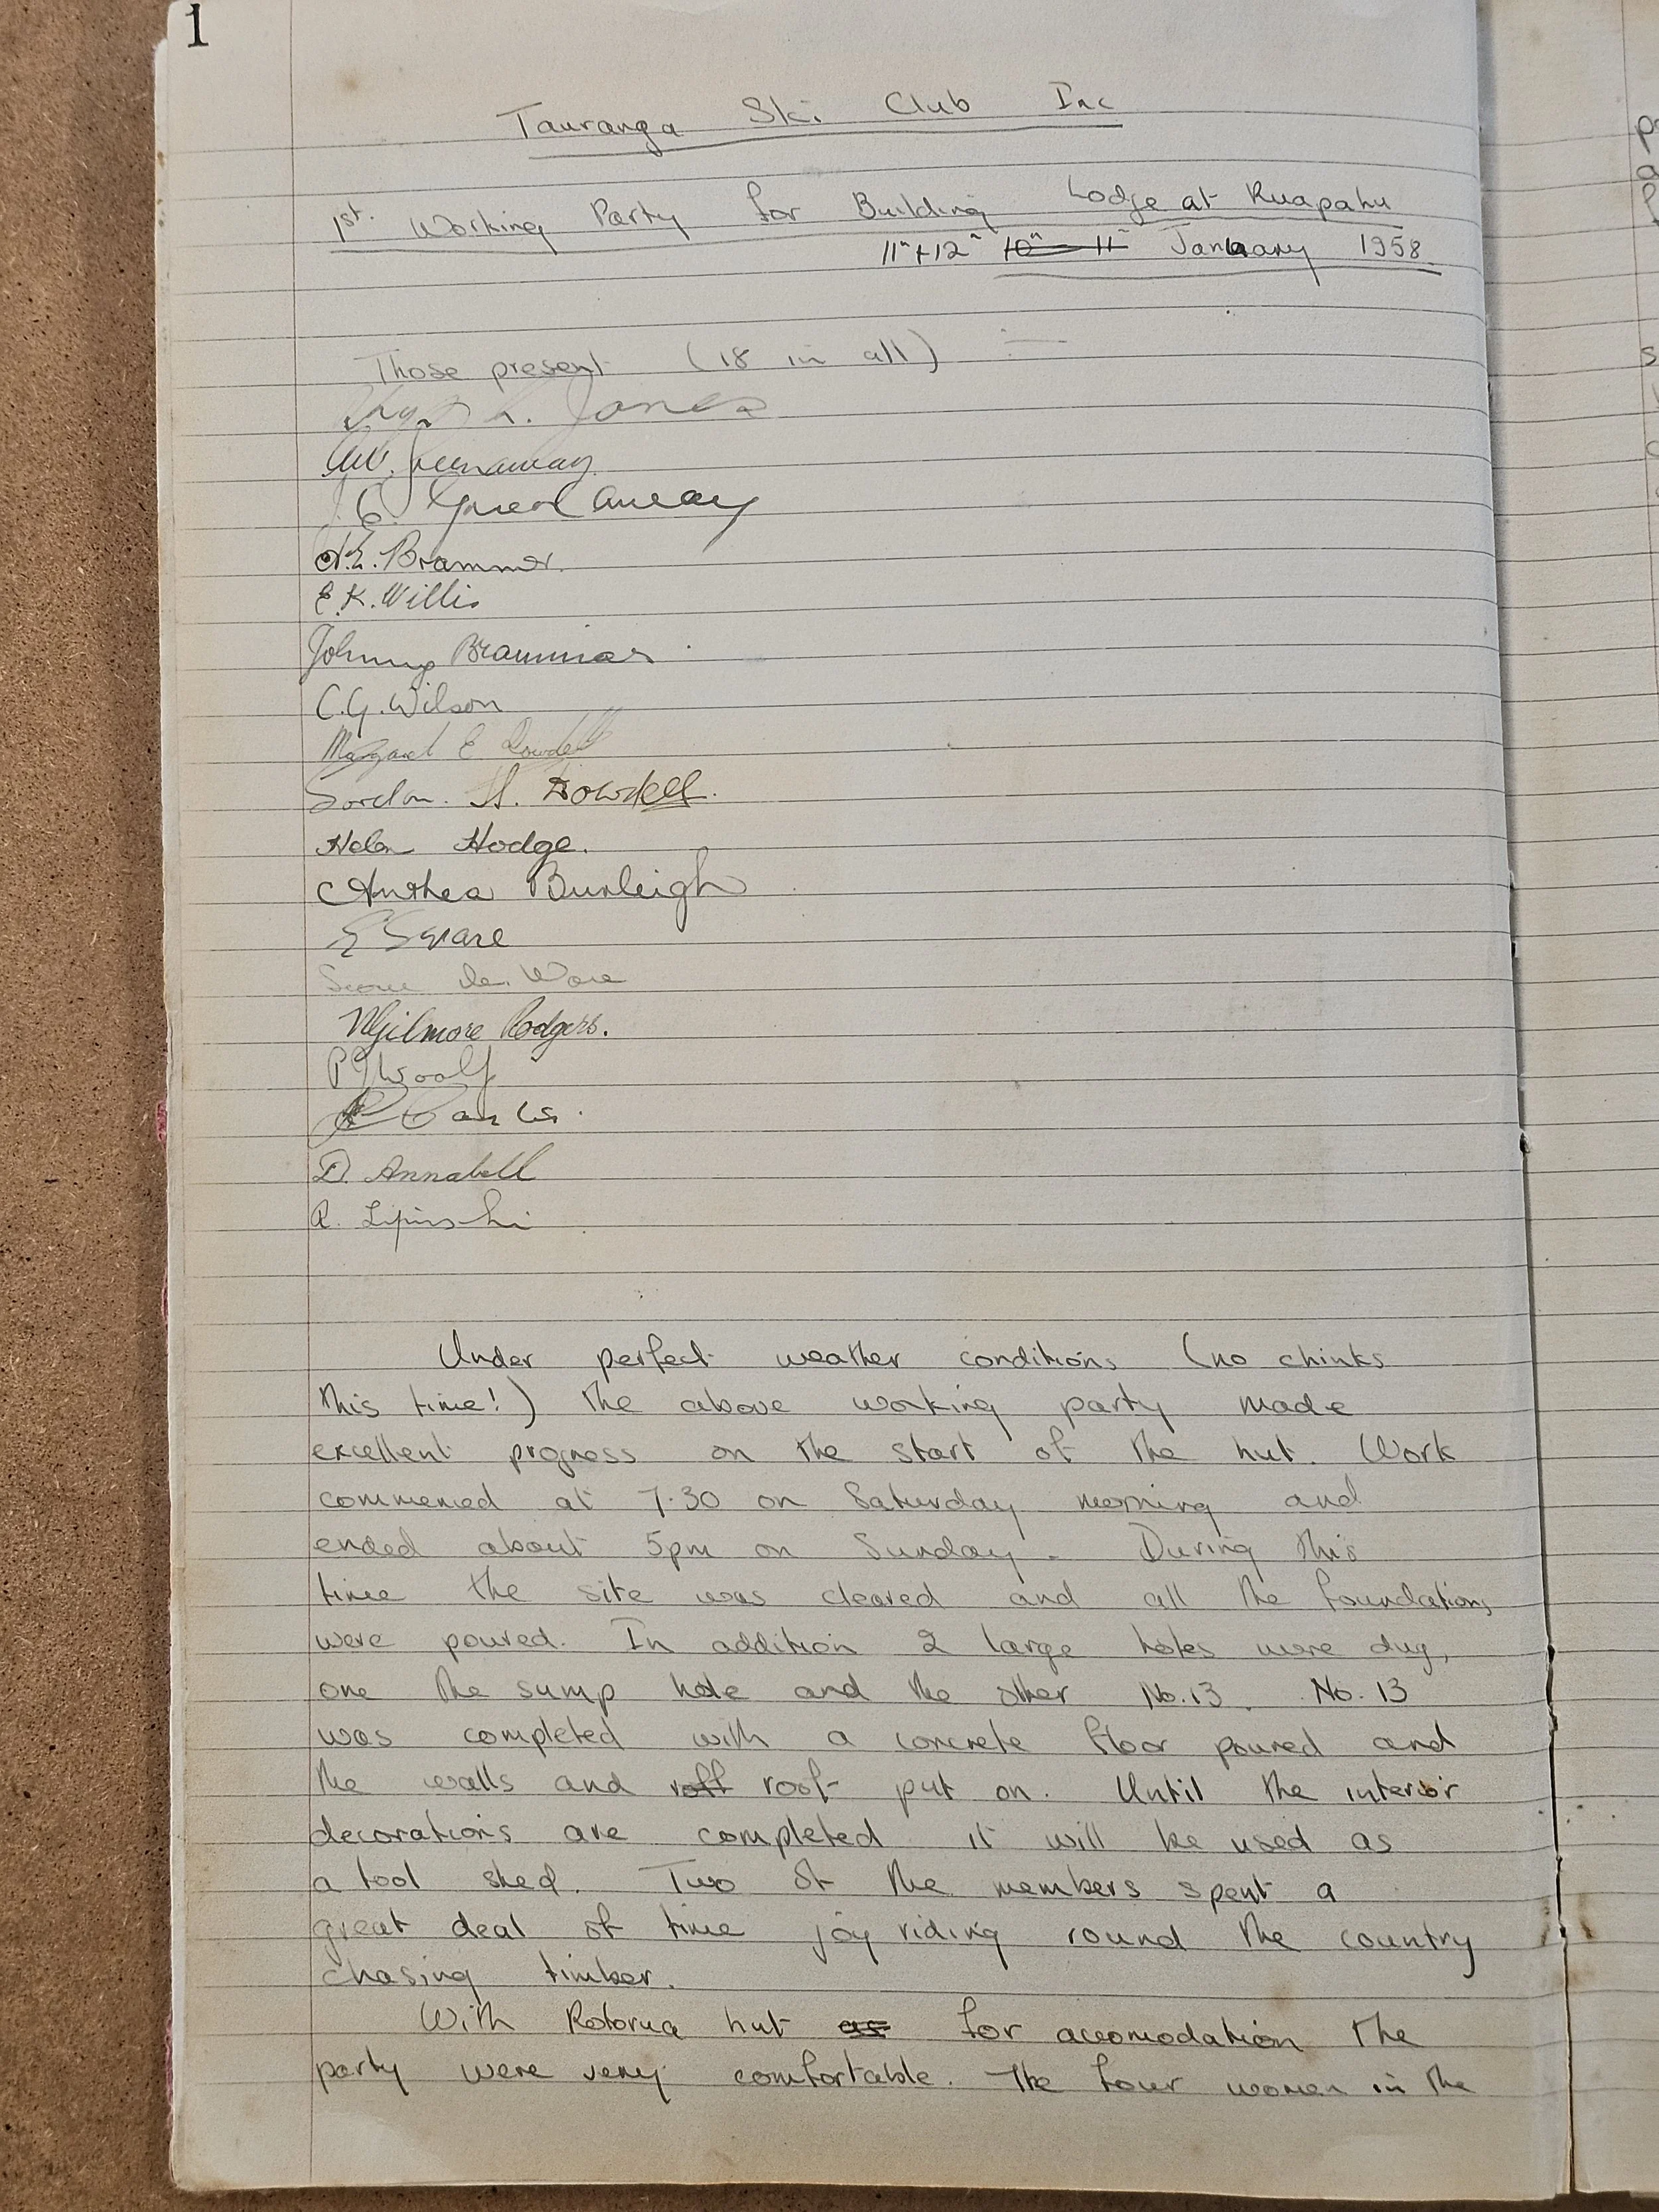 1
Tauranga Ski Club Inc
1st. Working Party for Building Lodge at Ruapahu
11" + 12" 10" 11" January 1958.
Those present (18 in all) :—
L. Jones
Greenaway
E. Greenaway
E. Brammer.
E.K. Willis
Johnny Brammer.
C.G. Wilson
Margaret E Dowdell
Gordon. H. Dowdell.
Helen Hodge.
Anthea Burleigh
E Square
Ware
Gilmore Rodgers.
P J Woolf
Banks.
D. Annabell
R. Lipinski
Under perfect weather conditions (no chinks
this time!) the above working party made
excellent progress on the start of the hut. Work
commenced at 7.30 on Saturday morning and
ended about 5pm on Sunday. During this
time the site was cleared and all the foundations
were poured. In addition 2 large holes were dug,
one the sump hole and the other No.13. No. 13
was completed with a concrete floor poured and
the walls and roff roof put on. Until the interior
decorations are completed it will be used as
a tool shed. Two of the members spent a
great deal of time joy riding round the country
chasing timber.
With Rotorua hut as for accomodation the
party were very comfortable. The four women in the